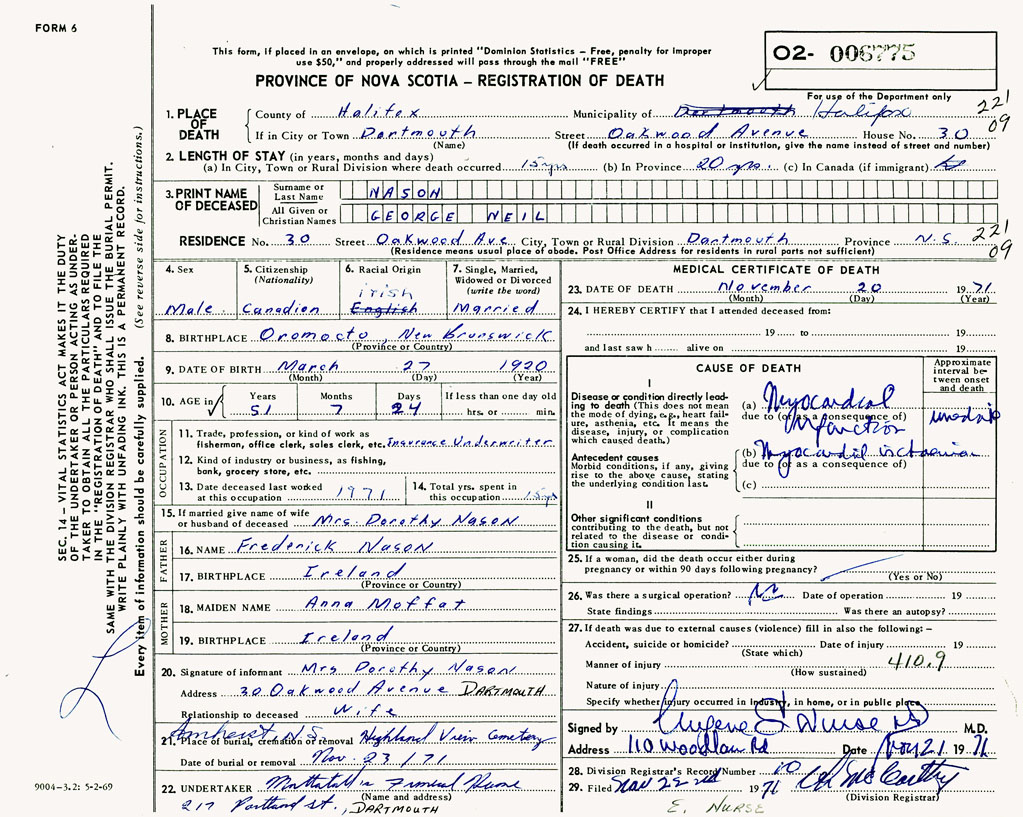 FORM 6
This form, if placed in an envelope, on which is printed "Dominion Statistics – Free, penalty for improper
use $50," and properly addressed will pass through the mail "FREE"
PROVINCE OF NOVA SCOTIA – REGISTRATION OF DEATH
O2- 006775
For use of the Department only
221
09
1. PLACE OF DEATH
County of Halifax Municipality of Dartmouth Halifax
If in City or Town Dartmouth Street Oakwood Avenue House No. 30
(Name) (If death occurred in a hospital or institution, give the name instead of street and number)
2. LENGTH OF STAY (in years, months and days)
(a) In City, Town or Rural Division where death occurred 15 yrs (b) In Province 20 yrs. (c) In Canada (if immigrant)
3. PRINT NAME OF DECEASED
Surname or Last Name NASON
All Given or Christian Names GEORGE NEIL
RESIDENCE No. 30 Street Oakwood Ave City, Town or Rural Division Dartmouth Province N.S.
221
09
(Residence means usual place of abode. Post Office Address for residents in rural parts not sufficient)
4. Sex
Male
5. Citizenship
(Nationality)
Canadian
6. Racial Origin
irish
English
7. Single, Married,
Widowed or Divorced
(write the word)
Married
8. BIRTHPLACE Oromocto, New Brunswick
(Province or Country)
9. DATE OF BIRTH March 27 1920
(Month) (Day) (Year)
10. AGE in
Years Months Days If less than one day old
51 7 24 hrs. or min.
OCCUPATION
11. Trade, profession, or kind of work as
fisherman, office clerk, sales clerk, etc. Insurance Underwriter
12. Kind of industry or business, as fishing,
bank, grocery store, etc.
13. Date deceased last worked
at this occupation 1971
14. Total yrs. spent in
this occupation 15 yrs
15. If married give name of wife
or husband of deceased Mrs. Dorothy Nason
FATHER
16. NAME Frederick Nason
17. BIRTHPLACE Ireland
(Province or Country)
MOTHER
18. MAIDEN NAME Anna Moffat
19. BIRTHPLACE Ireland
(Province or Country)
20. Signature of informant Mrs Dorothy Nason
Address 30 Oakwood Avenue DARTMOUTH
Relationship to deceased Wife
Amherst N.S.
21. Place of burial, cremation or removal Highland View Cemetery
Date of burial or removal Nov. 23/71
22. UNDERTAKER Funeral Home
(Name and address)
217 Portland st., DARTMOUTH
MEDICAL CERTIFICATE OF DEATH
23. DATE OF DEATH November 20 1971
(Month) (Day) (Year)
24. I HEREBY CERTIFY that I attended deceased from:
19 to 19
and last saw h alive on 19
CAUSE OF DEATH
Approximate
interval be-
tween onset
and death
I
Disease or condition directly lead-
ing to death (This does not mean
the mode of dying, e.g., heart fail-
ure, asthenia, etc. It means the
disease, injury, or complication
which caused death.)
(a) Myocardial
due to (or as a consequence of)
infarction
Antecedent causes
Morbid conditions, if any, giving
rise to the above cause, stating
the underlying condition last.
(b) Myocardial ischaemia
due to (or as a consequence of)
(c)
II
Other significant conditions
contributing to the death, but not
related to the disease or condi-
tion causing it.
25. If a woman, did the death occur either during
pregnancy or within 90 days following pregnancy?
(Yes or No)
26. Was there a surgical operation? No Date of operation 19
State findings Was there an autopsy?
27. If death was due to external causes (violence) fill in also the following: –
Accident, suicide or homicide? Date of injury 19
(State which)
Manner of injury 410.9
(How sustained)
Nature of injury
Specify whether injury occurred in industry, in home, or in public place
Signed by Eugene S Nurse MD M.D.
Address 110 Woodlawn Rd Date Nov 21 1971
28. Division Registrar's Record Number 10
29. Filed Nov 22nd 1971 McCarthy
(Division Registrar)
E. NURSE
SEC. 14 – VITAL STATISTICS ACT MAKES IT THE DUTY
OF THE UNDERTAKER OR PERSON ACTING AS UNDER-
TAKER TO OBTAIN ALL THE PARTICULARS REQUIRED
IN THE "REGISTRATION OF DEATH" AND TO FILE THE
SAME WITH THE DIVISION REGISTRAR WHO SHALL ISSUE THE BURIAL PERMIT.
WRITE PLAINLY WITH UNFADING INK. THIS IS A PERMANENT RECORD.
Every item of information should be carefully supplied. (See reverse side for instructions.)
9004-3.2: 5-2-69